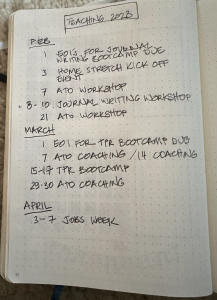 TEACHING 2023
FEB
1 EOI'S FOR JOURNAL
WRITING BOOTCAMP DUE
3 HOME STRETCH KICK OFF
EVENT
7 ATO WORKSHOP
8-10 JOURNAL WRITING WORKSHOP
21 ATO WORKSHOP
MARCH
1 EOI FOR TPR BOOTCAMP DUE
7 ATO COACHING / 14 COACHING
15-17 TPR BOOTCAMP
29-30 ATO COACHING
APRIL
3-7 JOBS WEEK